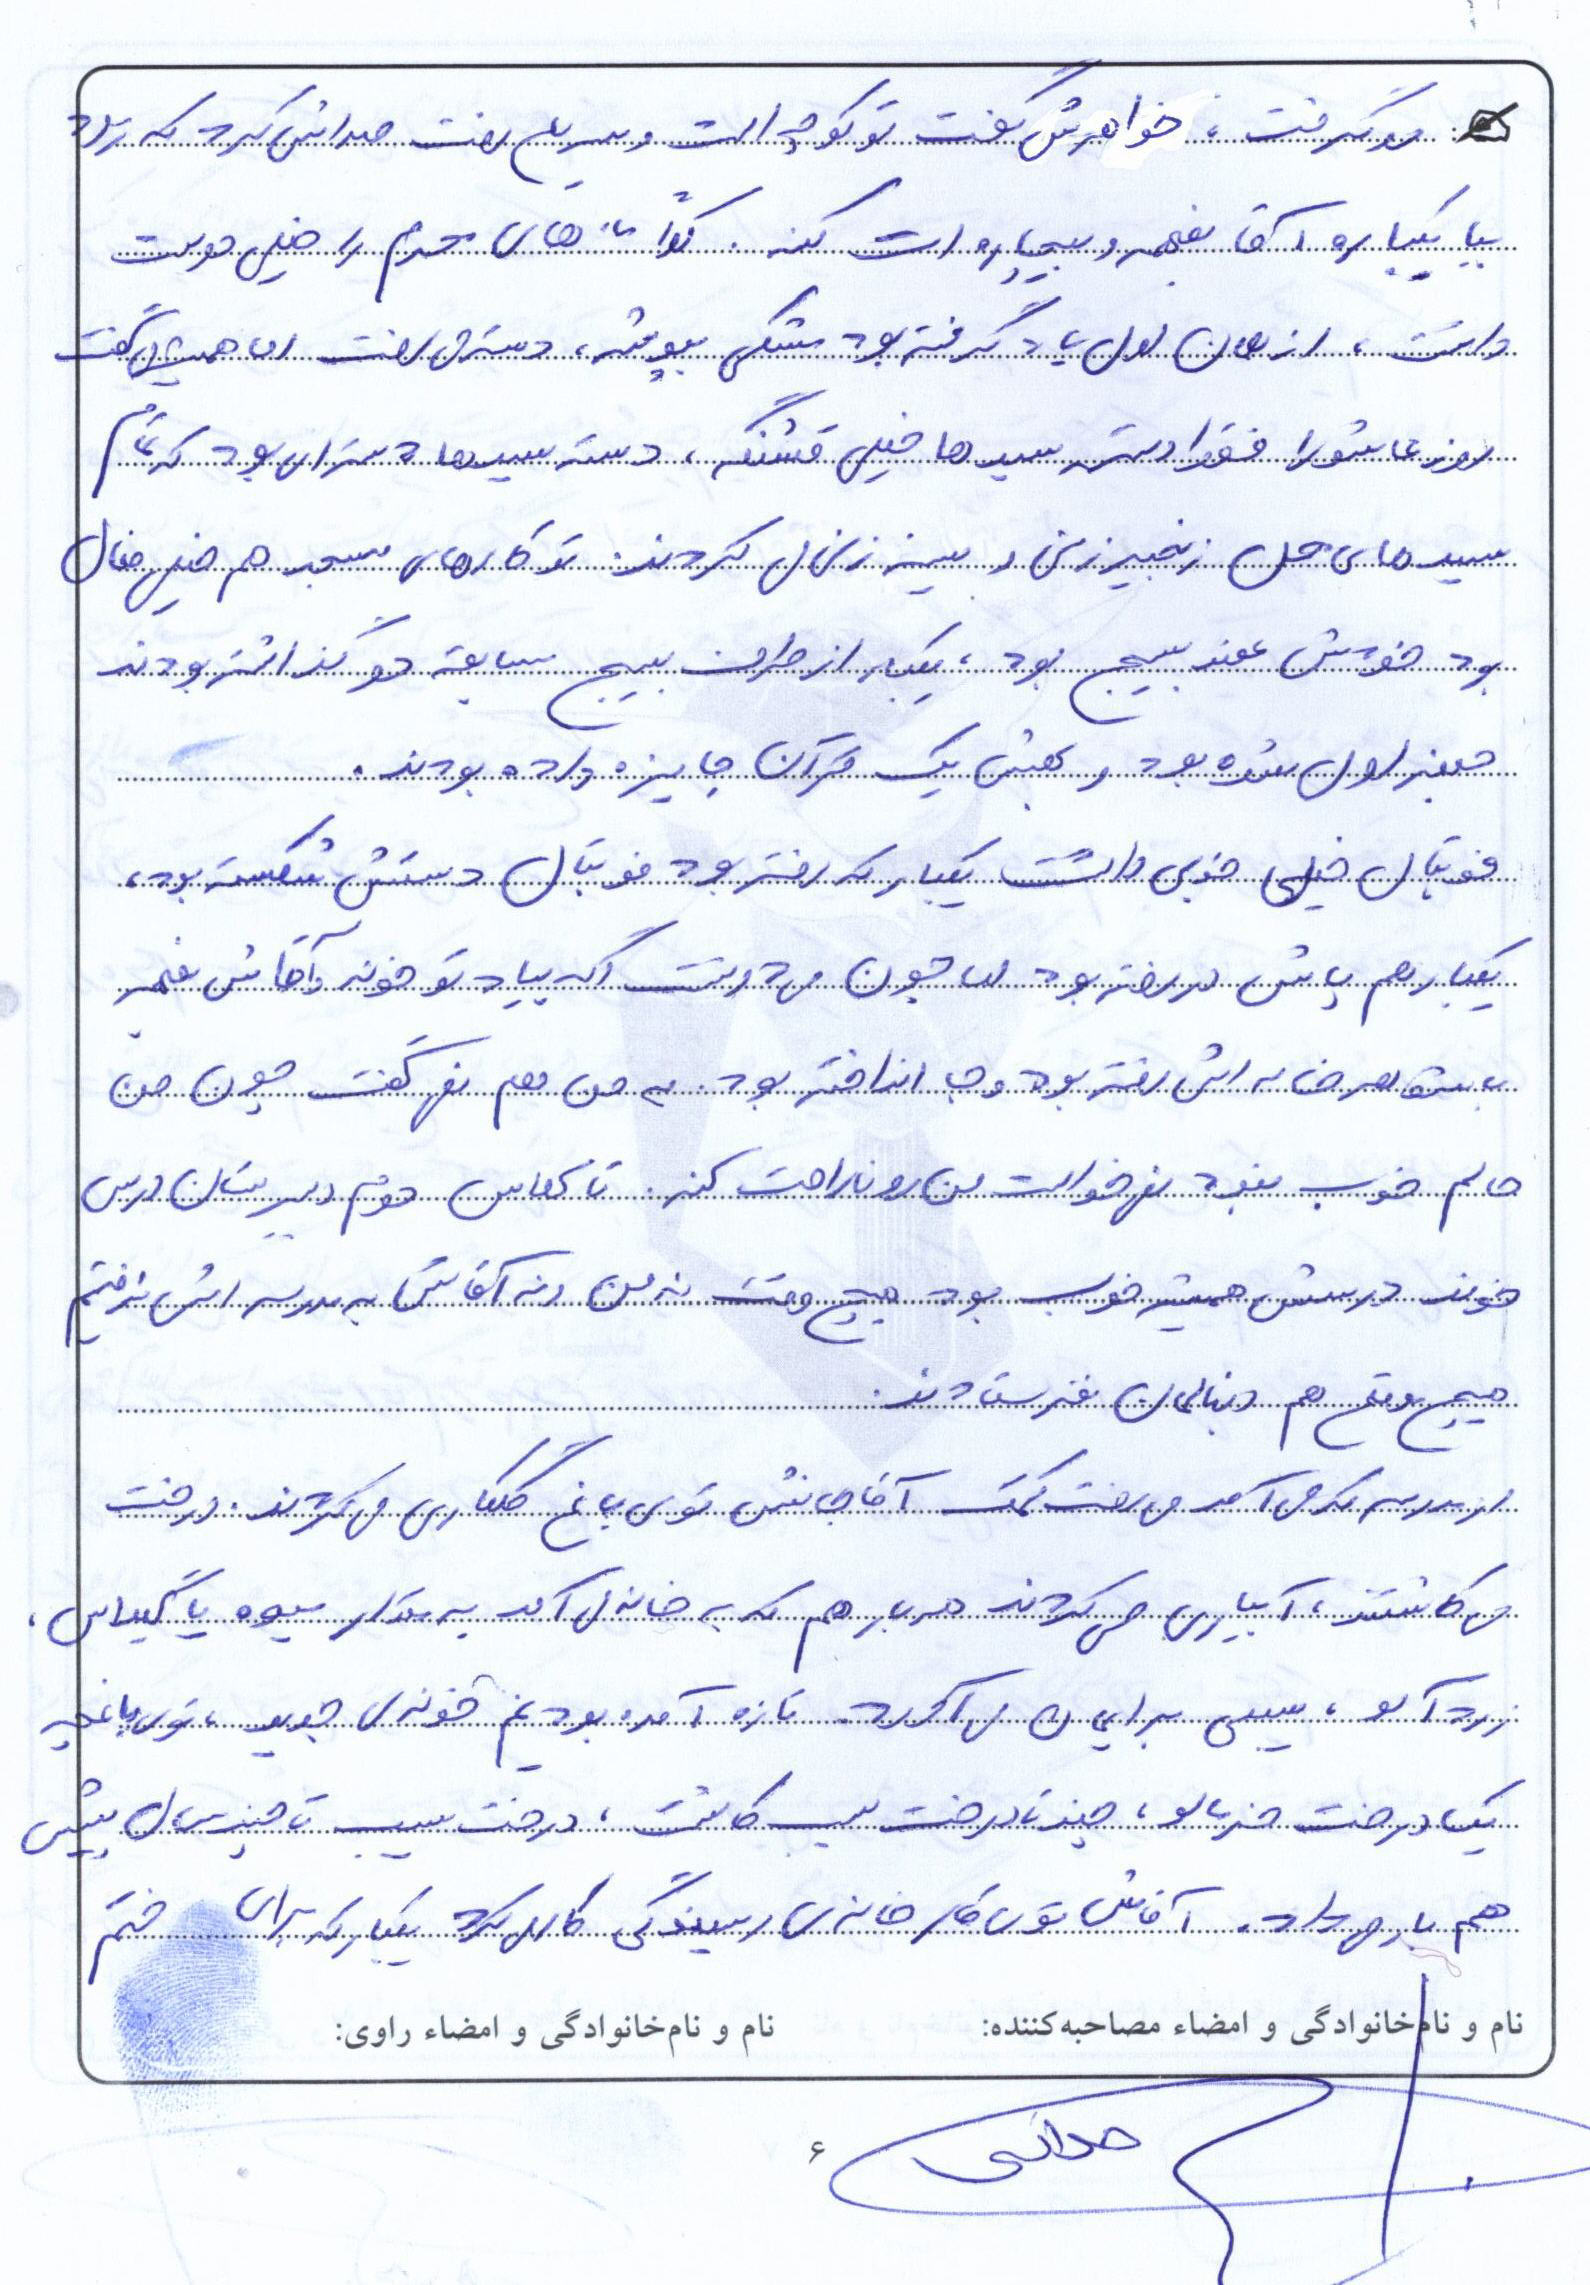 رو گرفت، خواهرش گفت تو کوچه است و سریع رفت صدایش کرد که زود
بیا یکباره آقا نفهمه و بیچاره ات کنه. کلاً ماه های محرم را خیلی دوست
داشت، از همان اول یاد گرفته بود مشکی بپوشه، دسته می رفت اما همیشه می گفت
روز عاشورا فقط دسته سیدها خیلی قشنگه، دسته سیدها دسته ای بود که تمام
سیدهای محل زنجیرزنی و سینه زنی می کردند. تو کارهای مسجد هم خیلی فعال
بود خودش عضو بسیج بود، یکبار از طرف بسیج مسابقه دو گذاشته بودند
جعفر اول شده بود و بهش یک قرآن جایزه داده بودند.
فوتبال خیلی خوبی داشت یکبار که رفته بود فوتبال دستش شکسته بود،
یکبار هم پاش در رفته بود اما چون می دونست اگه بیاد تو خونه و آقاش نفهمه
با شوهر خاله اش رفته بود و جا انداخته بود. به من هم نمی گفت چون من
حالم خوب نبود نمی خواست من رو ناراحت کنه. تا کلاس دوم دبیرستان درس
خوند درسش همیشه خوب بود هیچ وقت نه من و نه آقاش به مدرسه اش نرفتیم
هیچ وقت هم دنبالمان نفرستادند.
از مدرسه که می آمد می رفت کمک آقاجانش توی باغ گلکاری می کردند. درخت
می کاشتند، آبیاری می کردند هر بار هم که به خانه می آمد یه مقدار میوه یا گیلاس،
زردآلو، سیبی برایمان می آورد. تازه آمده بودیم خونه ی جدید، توی باغچه
یک درخت خرمالو، چند تا درخت سیب کاشت، درخت سیب تا چند سال پیش
هم بار می داد. آقاش توی کارخانه ی ریسندگی کار می کرد یکبار که برای ختم
نام و نام‌خانوادگی و امضاء مصاحبه‌کننده:
نام و نام‌خانوادگی و امضاء راوی:
۶